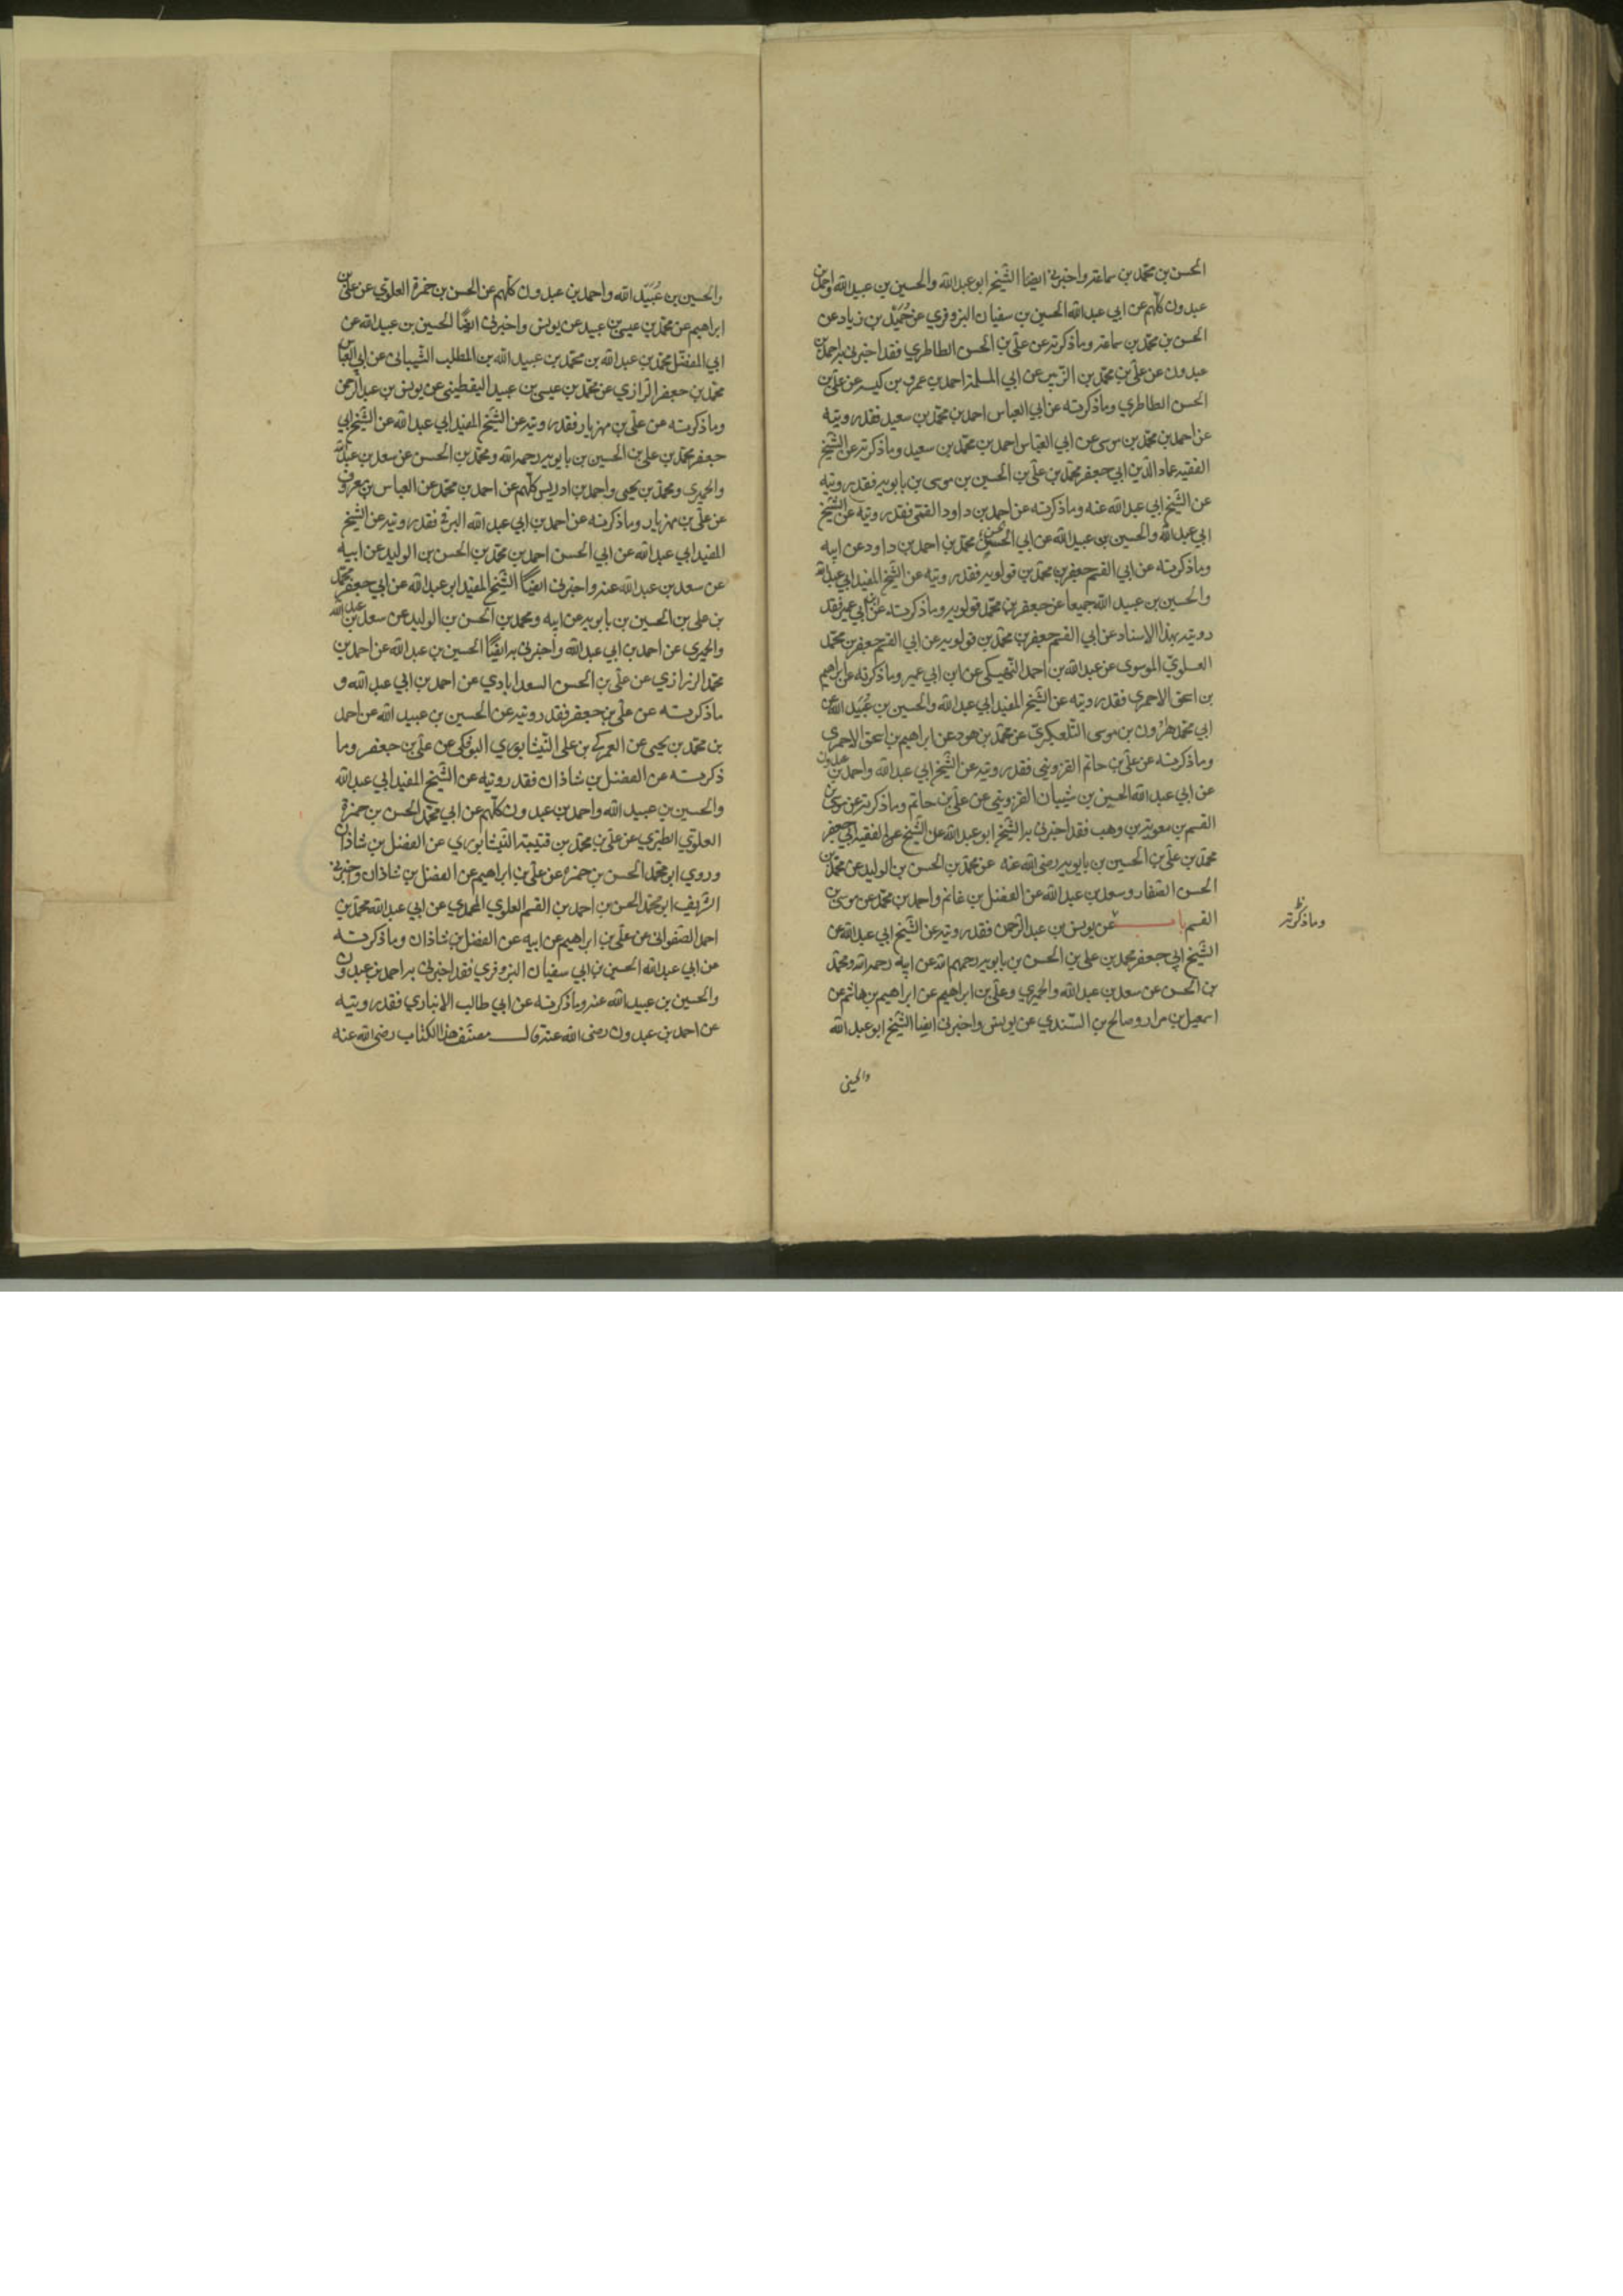 الحسن بن محمد بن سماعة واخبرنى ايضا الشيخ ابو عبد الله والحسين بن عبيد الله واحمد بن
عبدون كلهم عن ابي عبد الله الحسين بن سفيان البزوفري عن حميد بن زياد عن
الحسن بن محمد بن سماعة وما ذكرته عن علي بن الحسن الطاطري فقد اخبرنى به احمد بن
عبدون عن علي بن محمد بن الزبير عن ابي الملك احمد بن عمر بن كيسبه عن علي بن
الحسن الطاطري وما ذكرته عن ابي العباس احمد بن محمد بن سعيد فقد رويته
عن احمد بن محمد بن موسى عن ابي العباس احمد بن محمد بن سعيد وما ذكرته عن الشيخ
الفقيه عماد الدين ابي جعفر محمد بن علي بن الحسين بن موسى بن بابويه فقد رويته
عن الشيخ ابي عبد الله عنه وما ذكرته عن احمد بن داود القمي فقد رويته عن الشيخ
ابي عبد الله والحسين بن عبيد الله عن ابي الحسن محمد بن احمد بن داود عن ابيه
وما ذكرته عن ابي القسم جعفر بن محمد بن قولويه فقد رويته عن الشيخ المفيد ابي عبد الله
والحسين بن عبيد الله جميعا عن جعفر بن محمد قولويه وما ذكرته عن ابن ابي عمير فقد
رويته بهذا الاسناد عن ابي القسم جعفر بن محمد بن قولويه عن ابي القسم جعفر بن محمد
العلوي الموسوى عن عبد الله بن احمد النهيكى عن ابن ابي عمير وما ذكرته عن ابراهيم
بن اسحق الاحمري فقد رويته عن الشيخ المفيد ابي عبد الله والحسين بن عبيد الله عن
ابي محمد هرون بن موسى التلعكبري عن محمد بن هوده عن ابراهيم بن اسحق الاحمري
وما ذكرته عن علي بن حاتم القزويني فقد رويته عن الشيخ ابي عبد الله واحمد بن عبدون
عن ابي عبد الله الحسين بن شيبان القزويني عن علي بن حاتم وما ذكرته عن موسى بن
القسم بن معوية بن وهب فقد اخبرنى به الشيخ ابو عبد الله عن الشيخ الفقيه ابي جعفر
محمد بن علي بن الحسين بن بابويه رضى الله عنه عن محمد بن الحسن بن الوليد عن محمد بن
الحسن الصفار وسعد بن عبد الله عن الفضل بن غانم واحمد بن محمد عن موسى بن
القسم عن يونس بن عبد الرحمن فقد رويته عن الشيخ ابي عبد الله عن
وما ذكرته
الشيخ ابي جعفر محمد بن علي بن الحسن بن بابويه رحمهم الله عن ابيه رحمه الله ومحمد
بن الحسن عن سعد بن عبد الله والحميري وعلي بن ابراهيم عن ابراهيم بن هاشم عن
اسمعيل بن مرار وصالح بن السندي عن يونس واخبرنى ايضا الشيخ ابو عبد الله
والحسين
والحسين بن عبيد الله واحمد بن عبدون كلهم عن الحسن بن حمزة العلوي عن علي بن
ابراهيم عن محمد بن عيسى بن عبيد عن يونس واخبرنى ايضا الحسين بن عبيد الله عن
ابي المفضل محمد بن عبد الله بن محمد بن عبيد الله بن المطلب الشيبانى عن ابي العباس
محمد بن جعفر الرازي عن محمد بن عيسى بن عبيد اليقطينى عن يونس بن عبد الرحمن
وما ذكرته عن علي بن مهزيار فقد رويته عن الشيخ المفيد ابي عبد الله عن الشيخ ابي
جعفر محمد بن علي بن الحسين بن بابويه رحمه الله ومحمد بن الحسن عن سعد بن عبد الله
والحميري ومحمد بن يحيى واحمد بن ادريس كلهم عن احمد بن محمد عن العباس بن معروف
عن علي بن مهزيار وما ذكرته عن احمد بن ابي عبد الله البرقي فقد رويته عن الشيخ
المفيد ابي عبد الله عن ابي الحسن احمد بن محمد بن الحسن بن الوليد عن ابيه
عن سعد بن عبد الله عنه واخبرنى ايضا الشيخ المفيد ابو عبد الله عن ابي جعفر محمد
بن علي بن الحسين بن بابويه عن ابيه ومحمد بن الحسن بن الوليد عن سعد بن عبد الله
والحميري عن احمد بن ابي عبد الله واخبرنى به ايضا الحسين بن عبد الله عن احمد بن
محمد الزراري عن علي بن الحسن السعدابادي عن احمد بن ابي عبد الله و
ما ذكرته عن علي بن جعفر فقد رويته عن الحسين بن عبيد الله عن احمد
بن محمد بن يحيى عن العمركي بن علي النيشابوري البوفكى عن علي بن جعفر وما
ذكرته عن الفضل بن شاذان فقد رويته عن الشيخ المفيد ابي عبد الله
والحسين بن عبيد الله واحمد بن عبدون كلهم عن ابي محمد الحسن بن حمزة
العلوي الطبري عن علي بن محمد بن قتيبة النيشابوري عن الفضل بن شاذان
وروي ابو محمد الحسن بن حمزه عن علي بن ابراهيم عن الفضل بن شاذان واخبرنى
الشريف ابو محمد الحسن بن احمد بن القسم العلوي المحمدي عن ابي عبد الله محمد بن
احمد الصفوانى عن علي بن ابراهيم عن ابيه عن الفضل بن شاذان وما ذكرته
عن ابي عبد الله الحسين بن ابي سفيان البزوفري فقد اخبرنى به احمد بن عبدون
والحسين بن عبيد الله عنه وما ذكرته عن ابي طالب الانباري فقد رويته
عن احمد بن عبدون رضى الله عنه قال مصنف هذا الكتاب رضى الله عنه